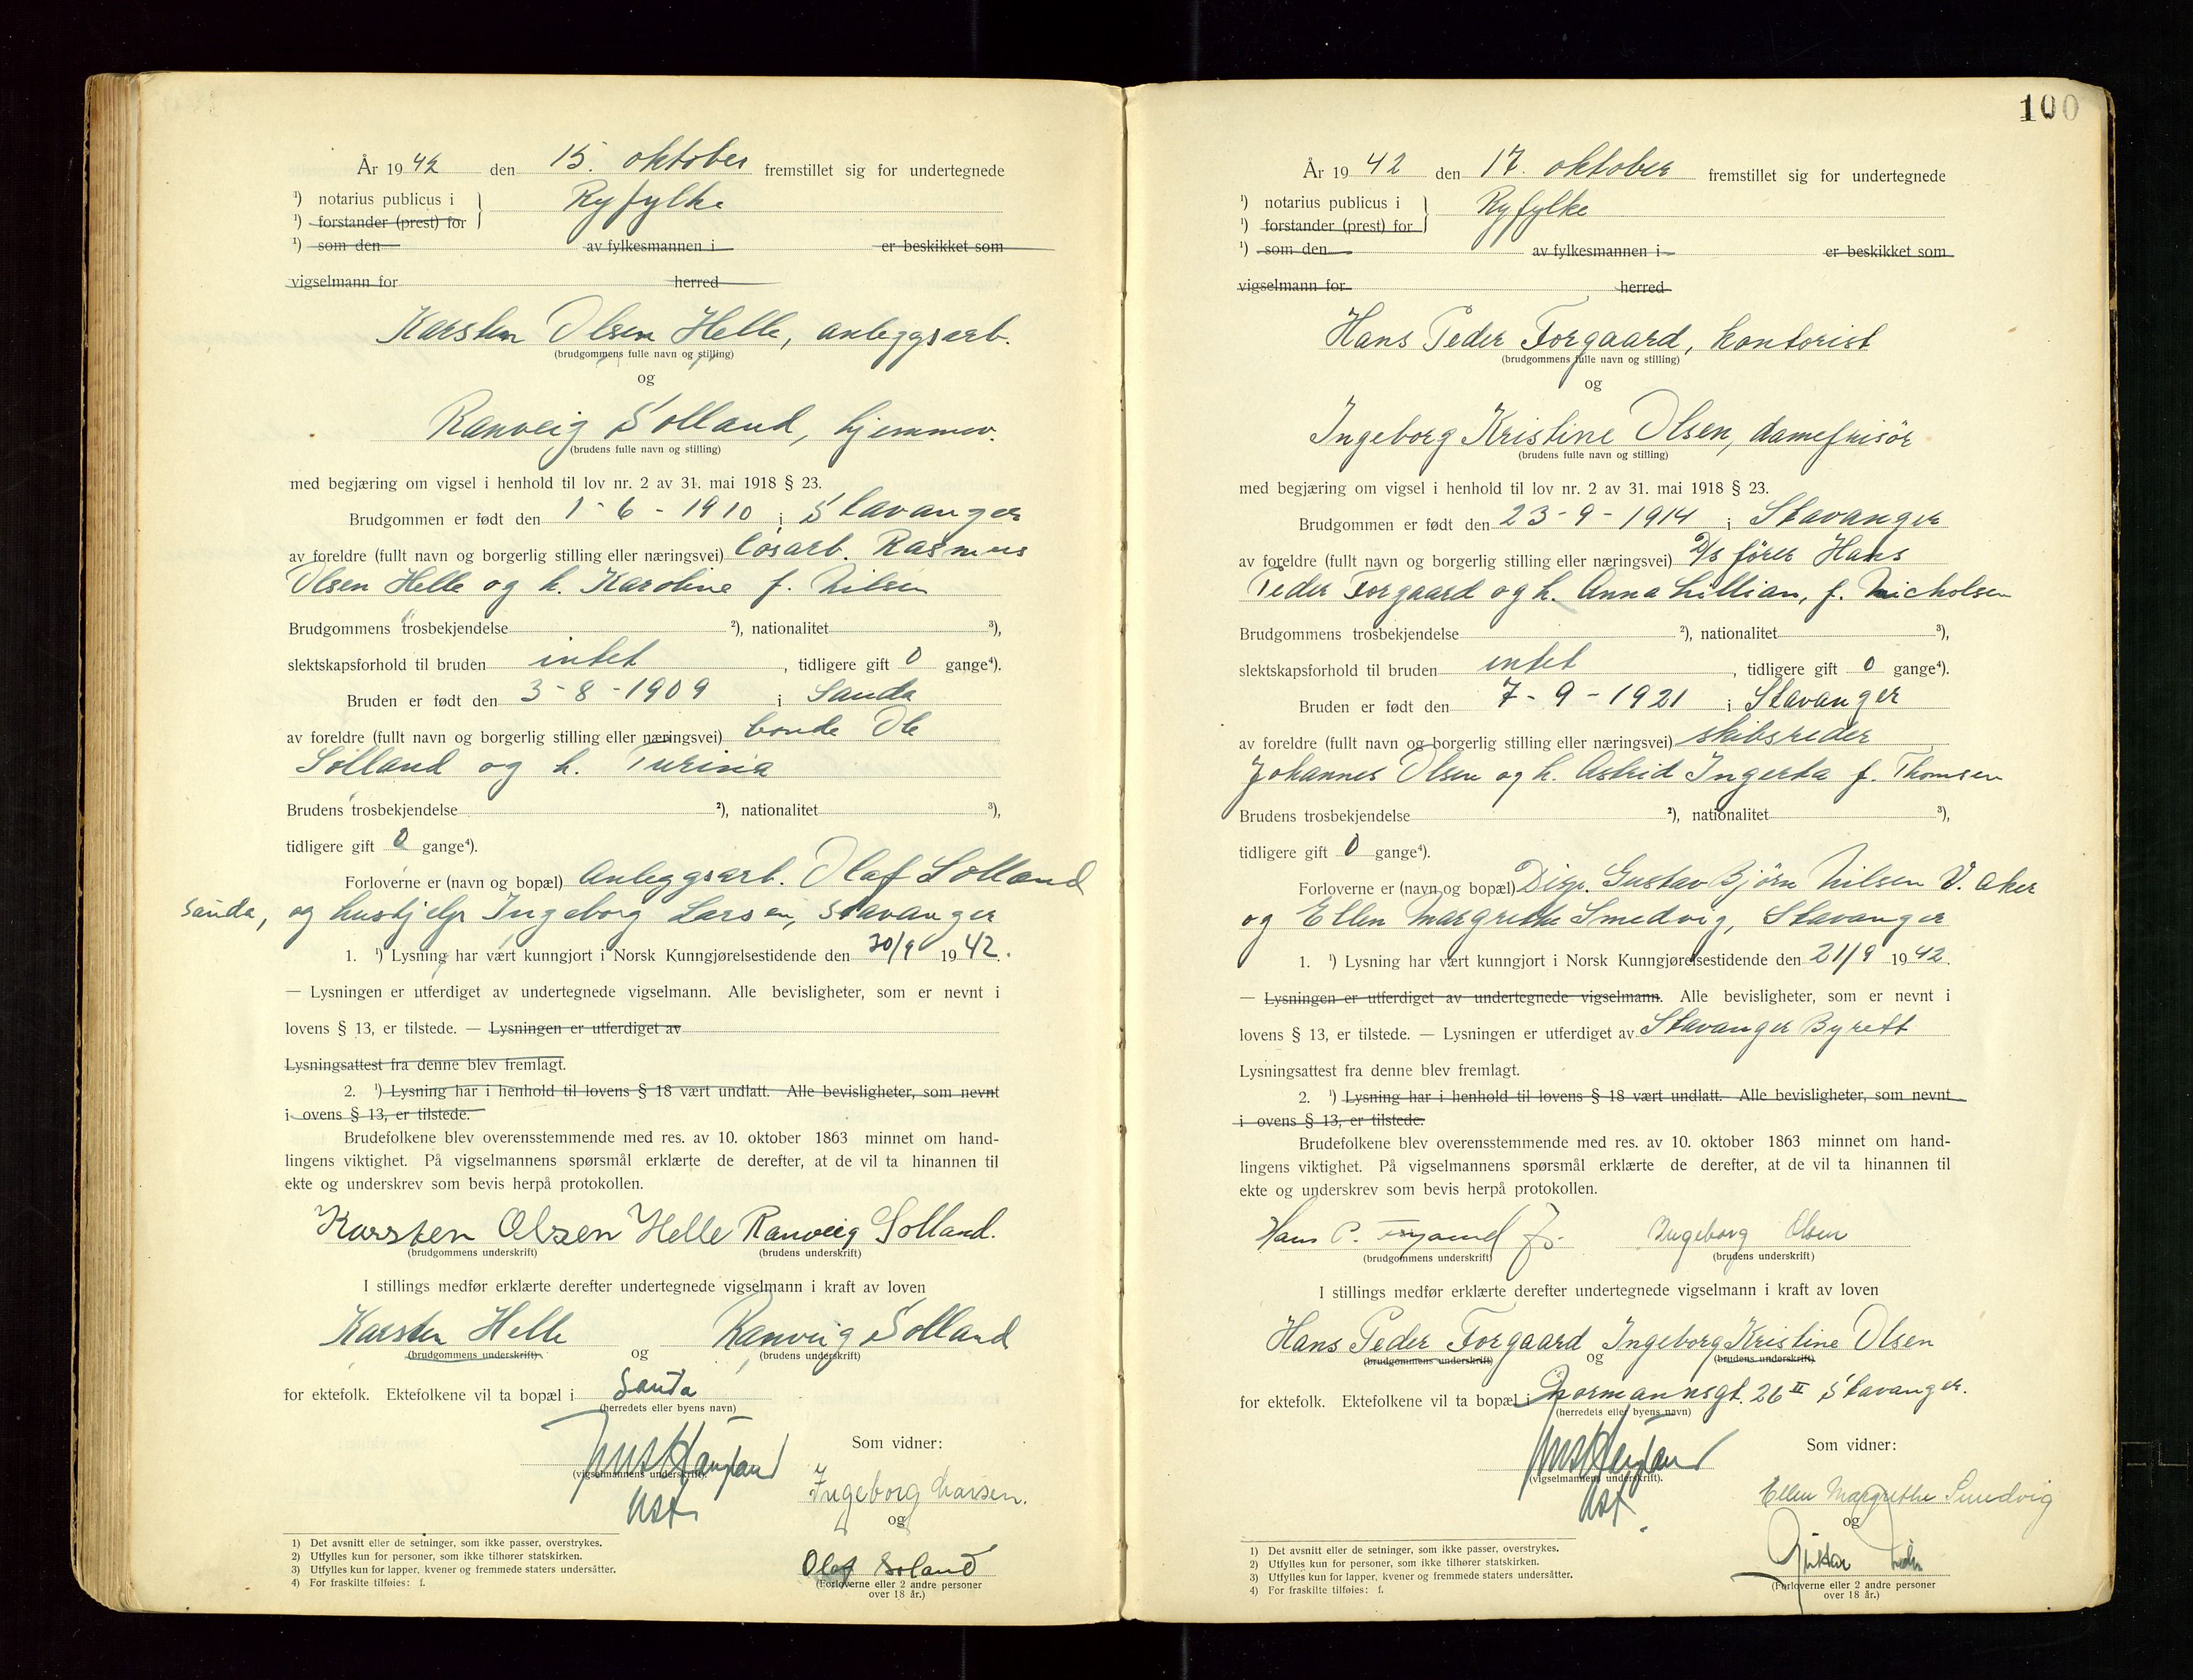 År 1942 den 15. oktober fremstillet sig for undertegnede
¹) notarius publicus i Ryfylke
¹) forstander (prest) for
¹) som den av fylkesmannen i er beskikket som
vigselmann for herred
Karsten Olsen Helle, anleggsarb.
(brudgommens fulle navn og stilling)
og
Ranveig Solland, hjemmev.
(brudens fulle navn og stilling)
med begjæring om vigsel i henhold til lov nr. 2 av 31. mai 1918 § 23.
Brudgommen er født den 1-6-1910 i Stavanger
av foreldre (fullt navn og borgerlig stilling eller næringsvei) løsarb. Rasmus
Olsen Helle og h. Karoline f. Nilsen
Brudgommens trosbekjendelse ²), nationalitet ³),
slektskapsforhold til bruden intet, tidligere gift 0 gange⁴).
Bruden er født den 3-8-1909 i Sauda
av foreldre (fullt navn og borgerlig stilling eller næringsvei) bonde Ole
Solland og h. Turina
Brudens trosbekjendelse ²), nationalitet ³),
tidligere gift 0 gange⁴).
Forloverne er (navn og bopæl) Anleggsarb. Olaf Solland
Sauda, og hushjelp Ingeborg Larsen, Stavanger
1. ¹) Lysning har vært kunngjort i Norsk Kunngjørelsestidende den 30/9 1942.
— Lysningen er utferdiget av undertegnede vigselmann. Alle bevisligheter, som er nevnt i
lovens § 13, er tilstede. — Lysningen er utferdiget av
Lysningsattest fra denne blev fremlagt.
2. ¹) Lysning har i henhold til lovens § 18 vært undlatt. Alle bevisligheter, som nevnt
i ovens § 13, er tilstede.
Brudefolkene blev overensstemmende med res. av 10. oktober 1863 minnet om hand-
lingens viktighet. På vigselmannens spørsmål erklærte de derefter, at de vil ta hinannen til
ekte og underskrev som bevis herpå protokollen.
Karsten Olsen Helle Ranveig Solland.
(brudgommens underskrift) (brudens underskrift)
I stillings medfør erklærte derefter undertegnede vigselmann i kraft av loven
Karsten Helle og Ranveig Solland
(brudgommens underskrift) (brudens underskrift)
for ektefolk. Ektefolkene vil ta bopæl i Sauda
(herredets eller byens navn)
Som vidner:
(vigselmannens underskrift).
Ingeborg Larsen.
og
Olaf Soland
(Forloverne eller 2 andre personer
over 18 år.)
1) Det avsnitt eller de setninger, som ikke passer, overstrykes.
2) Utfylles kun for personer, som ikke tilhører statskirken.
3) Utfylles kun for lapper, kvener og fremmede staters undersåtter.
4) For fraskilte tilføies: f.
100
År 1942 den 17. oktober fremstillet sig for undertegnede
¹) notarius publicus i Ryfylke
¹) forstander (prest) for
¹) som den av fylkesmannen i er beskikket som
vigselmann for herred
Hans Peder Forgaard, kontorist
(brudgommens fulle navn og stilling)
og
Ingeborg Kristine Olsen, damefrisør
(brudens fulle navn og stilling)
med begjæring om vigsel i henhold til lov nr. 2 av 31. mai 1918 § 23.
Brudgommen er født den 23-9-1914 i Stavanger
av foreldre (fullt navn og borgerlig stilling eller næringsvei) D/s fører Hans
Peder Forgaard og h. Anna Lillian, f. Nicholsen
Brudgommens trosbekjendelse ²), nationalitet ³),
slektskapsforhold til bruden intet, tidligere gift 0 gange⁴).
Bruden er født den 7-9-1921 i Stavanger
av foreldre (fullt navn og borgerlig stilling eller næringsvei) skibsreder
Johannes Olsen og h. Astrid Ingerta f. Thomsen
Brudens trosbekjendelse ²), nationalitet ³),
tidligere gift 0 gange⁴).
Forloverne er (navn og bopæl) Disp. Gustav Bjørn Nilsen V. Aker
og Ellen Margrethe Smedvig, Stavanger
1. ¹) Lysning har vært kunngjort i Norsk Kunngjørelsestidende den 21/9 1942.
— Lysningen er utferdiget av undertegnede vigselmann. Alle bevisligheter, som er nevnt i
lovens § 13, er tilstede. — Lysningen er utferdiget av Stavanger Byrett
Lysningsattest fra denne blev fremlagt.
2. ¹) Lysning har i henhold til lovens § 18 vært undlatt. Alle bevisligheter, som nevnt
i ovens § 13, er tilstede.
Brudefolkene blev overensstemmende med res. av 10. oktober 1863 minnet om hand-
lingens viktighet. På vigselmannens spørsmål erklærte de derefter, at de vil ta hinannen til
ekte og underskrev som bevis herpå protokollen.
Hans P. Forgaard Jr. Ingeborg Olsen
(brudgommens underskrift) (brudens underskrift)
I stillings medfør erklærte derefter undertegnede vigselmann i kraft av loven
Hans Peder Forgaard og Ingeborg Kristine Olsen
(brudgommens underskrift) (brudens underskrift)
for ektefolk. Ektefolkene vil ta bopæl i Normannsgt. 26 II Stavanger.
(herredets eller byens navn)
Som vidner:
(vigselmannens underskrift).
Ellen Margrethe Smedvig
og
(Forloverne eller 2 andre personer
over 18 år.)
1) Det avsnitt eller de setninger, som ikke passer, overstrykes.
2) Utfylles kun for personer, som ikke tilhører statskirken.
3) Utfylles kun for lapper, kvener og fremmede staters undersåtter.
4) For fraskilte tilføies: f.